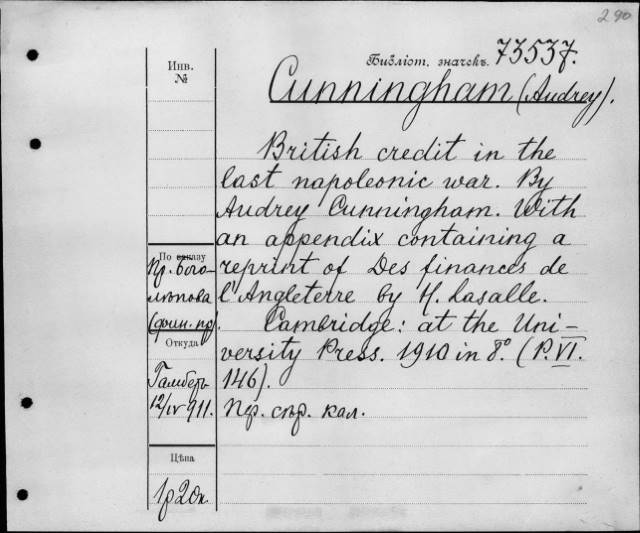 290
Инв.
№
Библіот. значекъ. 73537.
Cunningham (Audrey).
British credit in the
last napoleonic war. By
Audrey Cunningham. With
an appendix containing a
reprint of Des finances de
l'Angleterre by H. Lasalle.
Cambridge: at the Uni-
versity Press. 1910 in 8º. (P. VI.
146).
Пр. сѣр. кал.
По заказу
Пр. Бого-
лѣпова
(фин. пр).
Откуда
Гамберъ
12/IV 911.
Цѣна
1р20к